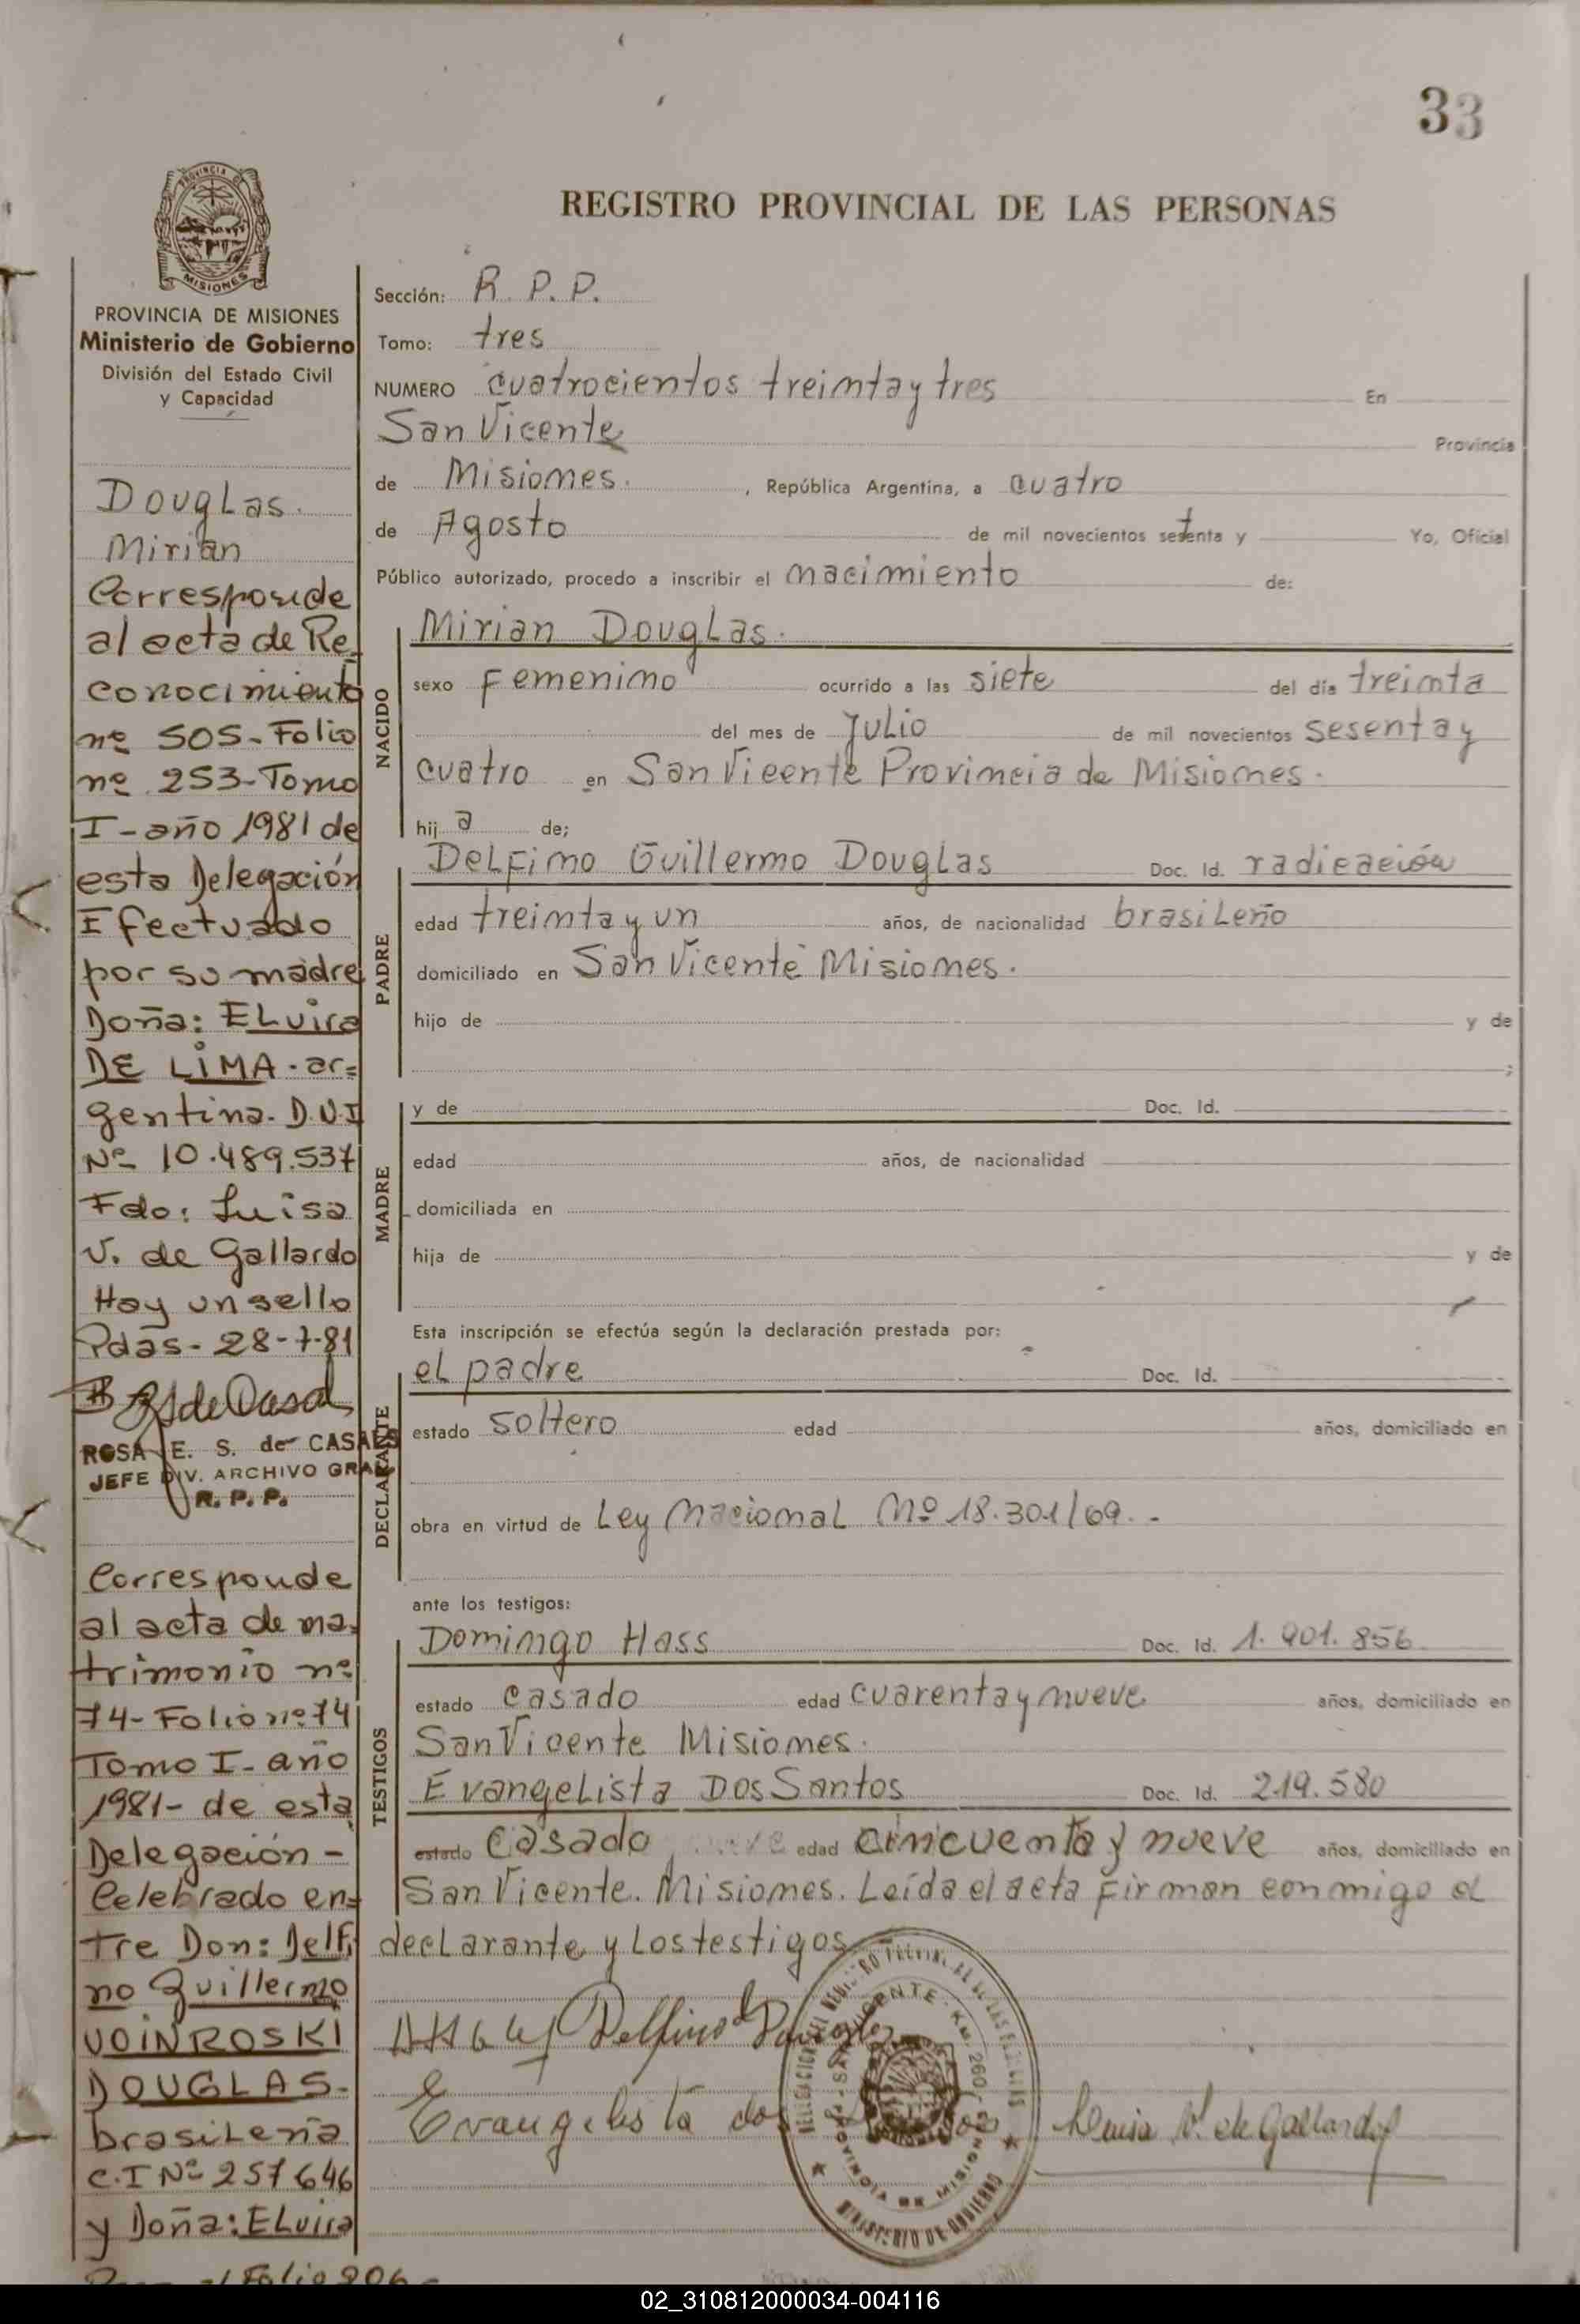 33
REGISTRO PROVINCIAL DE LAS PERSONAS
PROVINCIA DE
MISIONES
PROVINCIA DE MISIONES
Ministerio de Gobierno
División del Estado Civil
y Capacidad
Douglas.
Mirian
Corresponde
al acta de Re-
conocimiento
nº 505-Folio
nº 253-Tomo
I-año 1981 de
esta Delegación
Efectuado
por su madre
Doña: ELvira
DE LIMA-ar=
gentina. D.U.I
Nº 10.489.537
Fdo: Luisa
V. de Gallardo
Hay un sello
Pdas-28-7-81
ROSA E. S. de CASALS
JEFE DIV. ARCHIVO GRAL
R. P. P.
Corresponde
al acta de ma-
trimonio nº
74-Folio nº 74
Tomo I-año
1981-de esta
Delegación-
Celebrado en=
tre Don: Delfi
no Guillermo
VOINROSKI
DOUGLAS-
brasileña
C.I Nº 257646
y Doña: ELvira
Folio 806
Sección: R. P. P.
Tomo: tres
NUMERO cuatrocientos treinta y tres En
San Vicente Provincia
de Misiones. , República Argentina, a cuatro
de Agosto de mil novecientos setenta y Yo, Oficial
Público autorizado, procedo a inscribir el nacimiento de:
NACIDO
Mirian Douglas.
sexo femenino ocurrido a las siete del día treinta
del mes de Julio de mil novecientos sesenta y
cuatro en San Vicente Provincia de Misiones.
hij a de;
PADRE
Delfino Guillermo Douglas Doc. Id. radicación
edad treinta y un años, de nacionalidad brasileño
domiciliado en San Vicente Misiones.
hijo de y de
;
MADRE
y de Doc. Id.
edad años, de nacionalidad
domiciliada en
hija de y de
Esta inscripción se efectúa según la declaración prestada por:
DECLARANTE
el padre Doc. Id.
estado soltero edad años, domiciliado en
obra en virtud de Ley Nacional Nº 18.301/69.-
ante los testigos:
TESTIGOS
Domingo Hass Doc. Id. 1.901.856
estado casado edad cuarenta y nueve años, domiciliado en
San Vicente Misiones.
Evangelista Dos Santos Doc. Id. 219.580
estado Casado edad cincuenta y nueve años, domiciliado en
San Vicente. Misiones. Leída el acta firman conmigo el
declarante y los testigos
Delfino
Evangelista dos
Luisa V. de Gallardo
SAN VICENTE-KM. 260
PROVINCIA DE MISIONES
MINISTERIO DE GOBIERNO
02_310812000034-004116